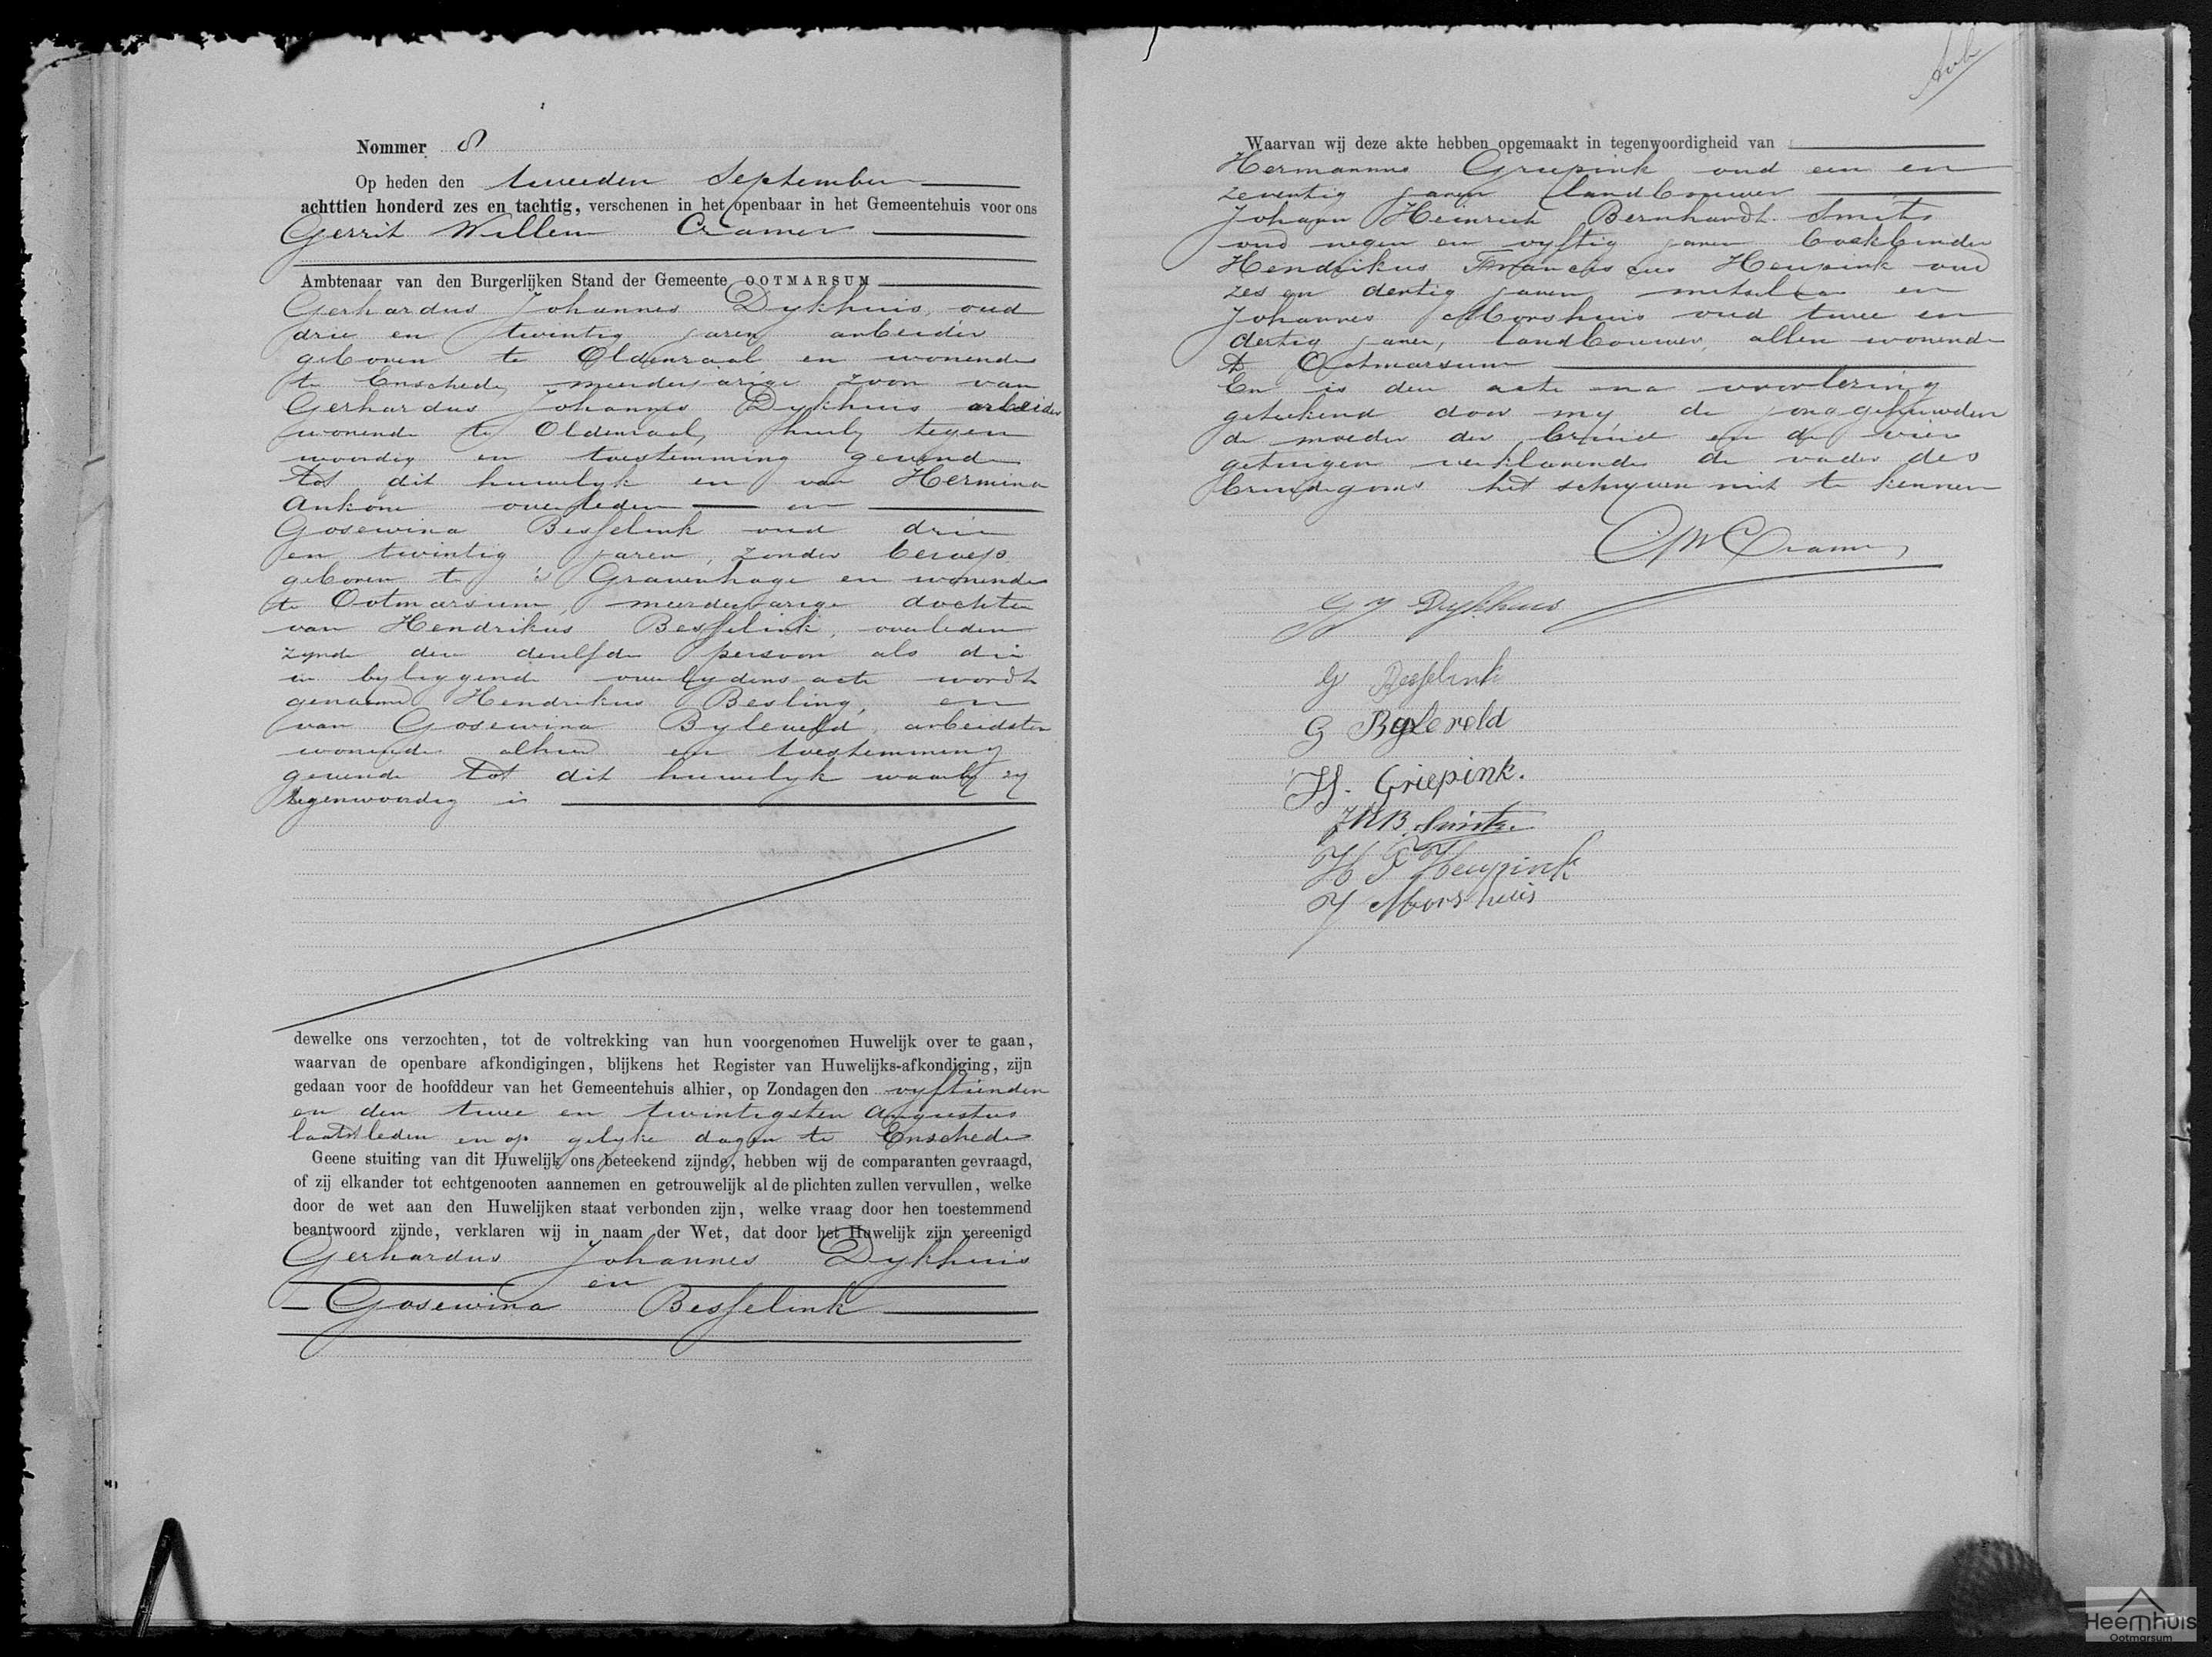 Nommer 8
Op heden den tweeden September
achttien honderd zes en tachtig, verschenen in het openbaar in het Gemeentehuis voor ons
Gerrit Willem Cramer
Ambtenaar van den Burgerlijken Stand der Gemeente OOTMARSUM
Gerhardus Johannes Dykhuis, oud
drie en twintig jaren arbeider
geboren te Oldenzaal en wonende
te Enschede, meerderjarige zoon van
Gerhardus Johannes Dykhuis arbeider
wonende te Oldenzaal, hierby tegen
woordig en toestemming gevende
tot dit huwelyk en van Hermina
Ankone overleden en
Gosewina Besselink oud drie
en twintig jaren, zonder beroep
geboren te 's Gravenhage en wonende
te Ootmarsum, meerderjarige dochter
van Hendrikus Besselink, overleden
zynde deze dezelfde persoon als die
in byliggende overlydens acte wordt
genaamd Hendrikus Besling, en
van Gosewina Byleveld, arbeidster
wonende alhier en toestemming
gevende tot dit huwelyk waarby zy
tegenwoordig is
dewelke ons verzochten, tot de voltrekking van hun voorgenomen Huwelijk over te gaan,
waarvan de openbare afkondigingen, blijkens het Register van Huwelijks-afkondiging, zijn
gedaan voor de hoofddeur van het Gemeentehuis alhier, op Zondagen den vyftienden
en den twee en twintigsten Augustus
laatstleden en op gelyke dagen te Enschede
Geene stuiting van dit Huwelijk ons beteekend zijnde, hebben wij de comparanten gevraagd,
of zij elkander tot echtgenooten aannemen en getrouwelijk al de plichten zullen vervullen, welke
door de wet aan den Huwelijken staat verbonden zijn, welke vraag door hen toestemmend
beantwoord zijnde, verklaren wij in naam der Wet, dat door het Huwelijk zijn vereenigd
Gerhardus Johannes Dykhuis
en
Gosewina Besselink
Waarvan wij deze akte hebben opgemaakt in tegenwoordigheid van
Hermannus Griepink oud een en
zeventig jaren landbouwer
Johann Heinrich Bernhardt Smits
oud negen en vyftig jaren boekbinder
Hendrikus Franciscus Heupink oud
zes en dertig jaren metselaar en
Johannes Morshuis oud twee en
dertig jaren, landbouwer, allen wonende
te Ootmarsum
En is deze acte na voorlezing
geteekend door my de jonggehuwden
de moeder der bruid en de vier
getuigen verklarende de vader des
bruidegoms het schryven niet te kennen
GWCramer
G J Dykhuis
G Besselink
G Byleveld
H. Griepink.
JHB Smits
H F Heupink
J Morshuis
Heemhuis
Ootmarsum